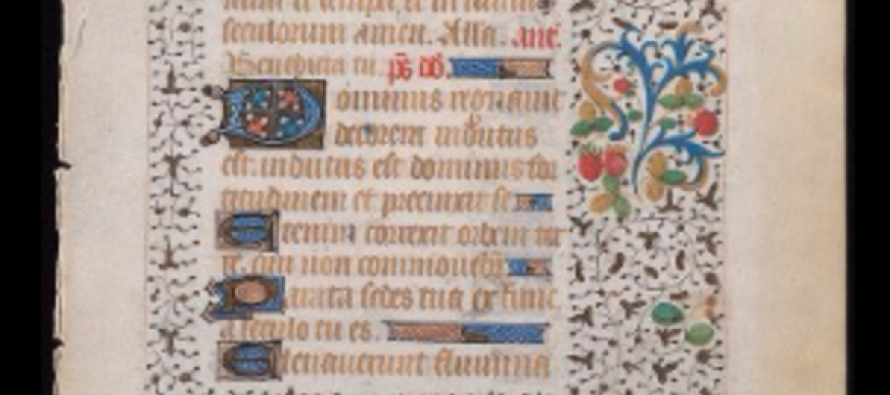 seculorum amen. Alla. ant.
Benedicta tu. ps dd.
Dominus regnauit
decorem indutus
est. indutus est dominus for
titudinem et precinxit se
Etenim
orbem ter
re. qui non commouebr
Parata sedes tua ex tunc
a seculo tu es.
Eleuauerunt flumina